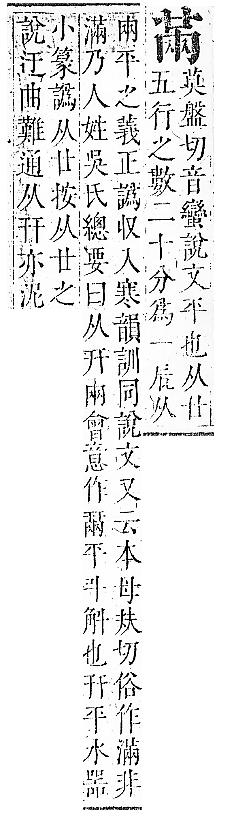 㒼
莫盤切音蠻說文平也从廿
五行之數二十分爲一辰从
㒳平之義正譌収入寒韻訓同說文又云本母㚘切俗作滿非
滿乃人姓吳氏總要曰从幵㒳會意作㒼平斗斛也幵平水器
小篆譌从廿按从廿之
說迂曲難通从幵亦泥